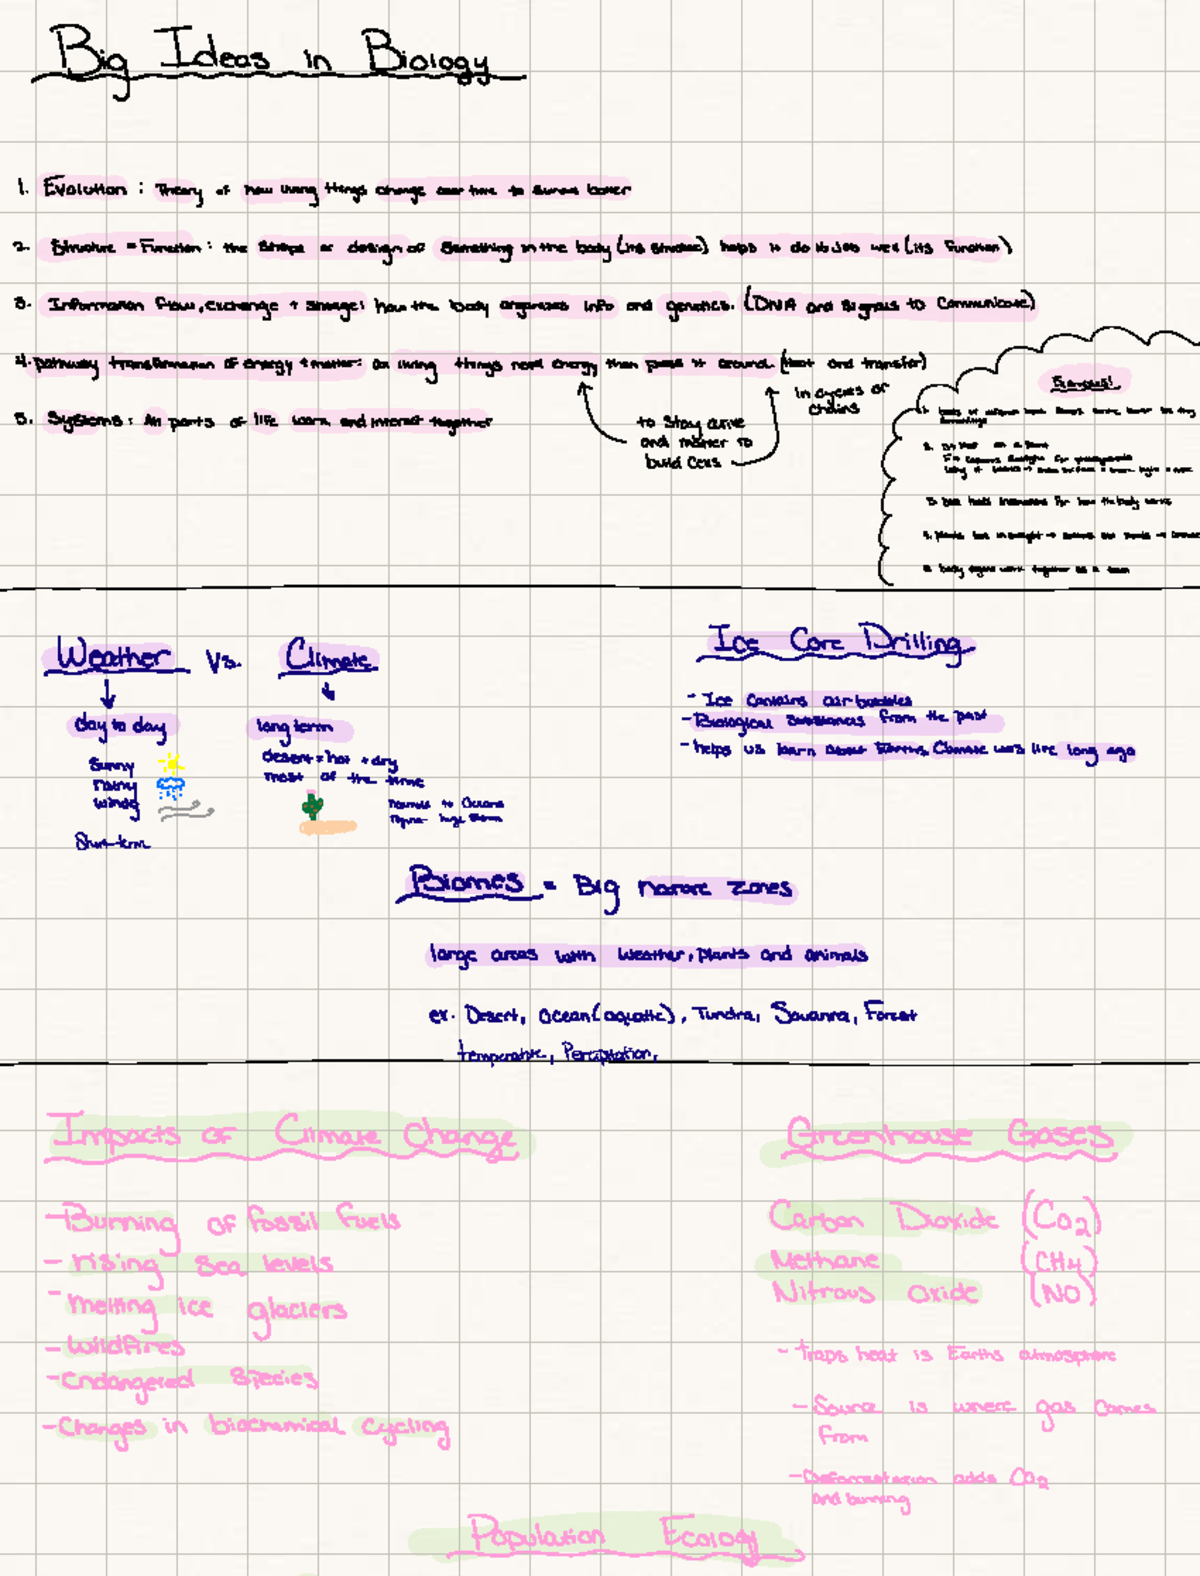 Big Ideas in Biology
1. Evolution : Theory of how living things change over time to survive better
2. Structure = Function : the shape or design of something in the body (its structure) helps it do its job well (its function)
3. Information flow, exchange + storage: how the body organizes info and genetics. (DNA and signals to communicate)
4. pathway transformation of energy + matter: all living things need energy then pass it around (heat and transfer)
in cycles or
chains
to stay alive
and matter to
build cells
5. Systems : All parts of life work and interact together
Examples!
3. DNA holds instructions for how the body works
5. body organs work together as a team
Weather Vs. Climate
day to day
Sunny
rainy
windy
Short-term
long term
desert = hot + dry
most of the time
Ice Core Drilling
- Ice contains air bubbles
- Biological substances from the past
- helps us learn about Earths Climate was like long ago
Biomes = Big nature zones
large areas with weather, plants and animals
ex. Desert, Ocean (aquatic), Tundra, Savanna, Forest
temperature, Percipitation,
Impacts of Climate Change
- Burning of fossil fuels
- rising sea levels
- melting ice glaciers
- wildfires
- Endangered Species
- Changes in biochemical cycling
Greenhouse Gases
Carbon Dioxide (CO2)
Methane (CH4)
Nitrous Oxide (NO)
- Traps heat is Earths atmosphere
- Source is where gas comes
from
- Deforrestation adds CO2
and burning
Population Ecology